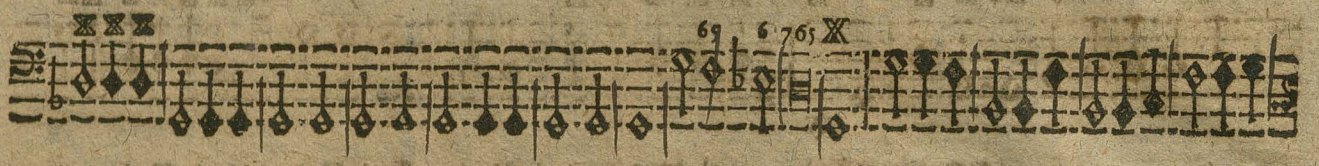 69 6 765